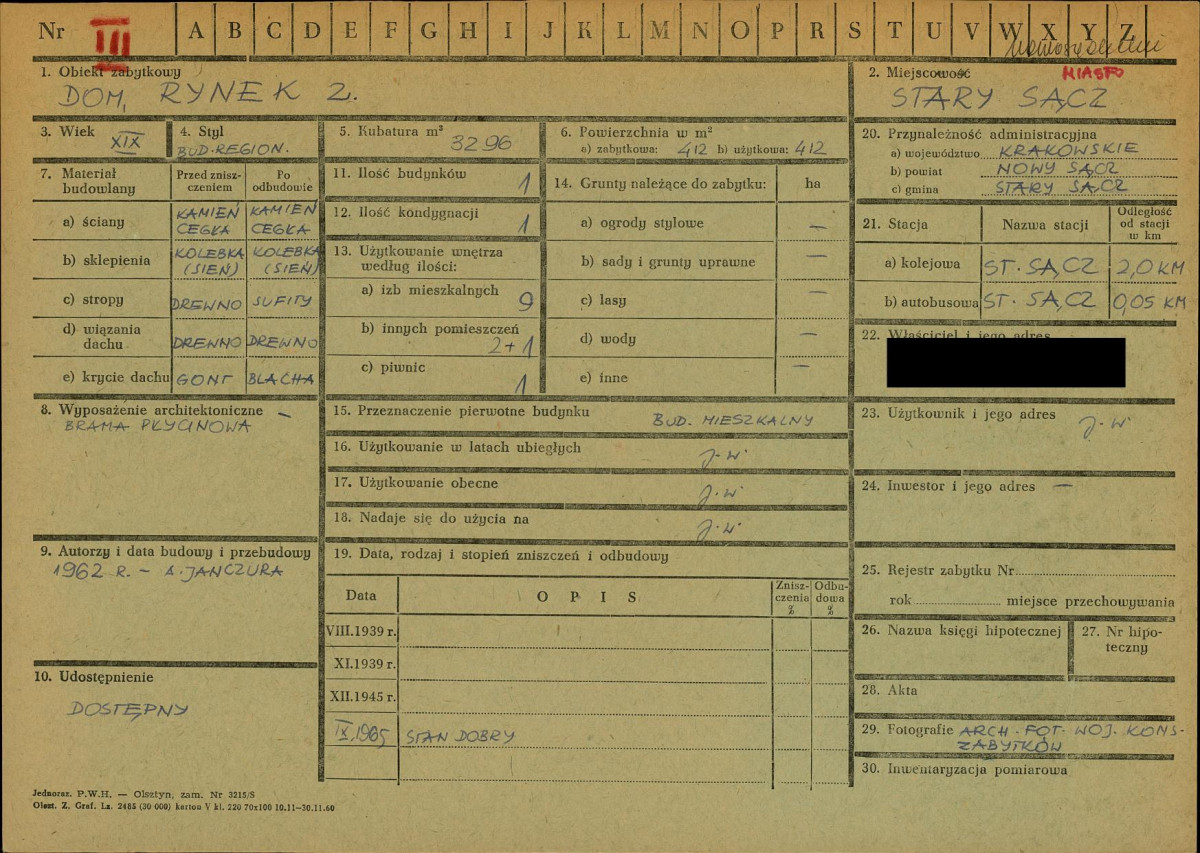 Nr III A B C D E F G H I J K L M N O P R S T U V W X Y Z
1. Obiekt zabytkowy
DOM, RYNEK 2.
2. Miejscowość
MIASTO
STARY SĄCZ
3. Wiek
XIX
4. Styl
BUD. REGION.
5. Kubatura m³
3296
6. Powierzchnia w m²
a) zabytkowa: 412 b) użytkowa: 412
20. Przynależność administracyjna
a) województwo KRAKOWSKIE
b) powiat NOWY SĄCZ
c) gmina STARY SĄCZ
7. Materiał budowlany
Przed zniszczeniem
Po odbudowie
a) ściany KAMIEŃ CEGŁA KAMIEŃ CEGŁA
b) sklepienia KOLEBKA (SIEŃ) KOLEBKA (SIEŃ)
c) stropy DREWNO SUFITY
d) wiązania dachu DREWNO DREWNO
e) krycie dachu GONT BLACHA
11. Ilość budynków 1
12. Ilość kondygnacji 1
13. Użytkowanie wnętrza według ilości:
a) izb mieszkalnych 9
b) innych pomieszczeń 2+1
c) piwnic 1
14. Grunty należące do zabytku: ha
a) ogrody stylowe —
b) sady i grunty uprawne —
c) lasy —
d) wody —
e) inne —
21. Stacja
Nazwa stacji
Odległość od stacji w km
a) kolejowa ST. SĄCZ 2,0 KM
b) autobusowa ST. SĄCZ 0,05 KM
22. Właściciel i jego adres
8. Wyposażenie architektoniczne —
BRAMA PŁYCINOWA
15. Przeznaczenie pierwotne budynku BUD. MIESZKALNY
16. Użytkowanie w latach ubiegłych j.w.
17. Użytkowanie obecne j.w.
18. Nadaje się do użycia na j.w.
23. Użytkownik i jego adres j.w.
24. Inwestor i jego adres —
9. Autorzy i data budowy i przebudowy
1962 R. — A. JANCZURA
19. Data, rodzaj i stopień zniszczeń i odbudowy
Data
OPIS
Zniszczenia %
Odbudowa %
VIII.1939 r.
XI.1939 r.
XII.1945 r.
IX.1965 STAN DOBRY
25. Rejestr zabytku Nr
rok miejsce przechowywania
26. Nazwa księgi hipotecznej
27. Nr hipoteczny
10. Udostępnienie
DOSTĘPNY
28. Akta
29. Fotografie ARCH. FOT. WOJ. KONS-
ZABYTKÓW
30. Inwentaryzacja pomiarowa
Jednoraz. P.W.H. — Olsztyn, zam. Nr 3215/S
Olszt. Z. Graf. Lz. 2485 (30 000) karton V kl. 220 70x100 10.11—30.11.60